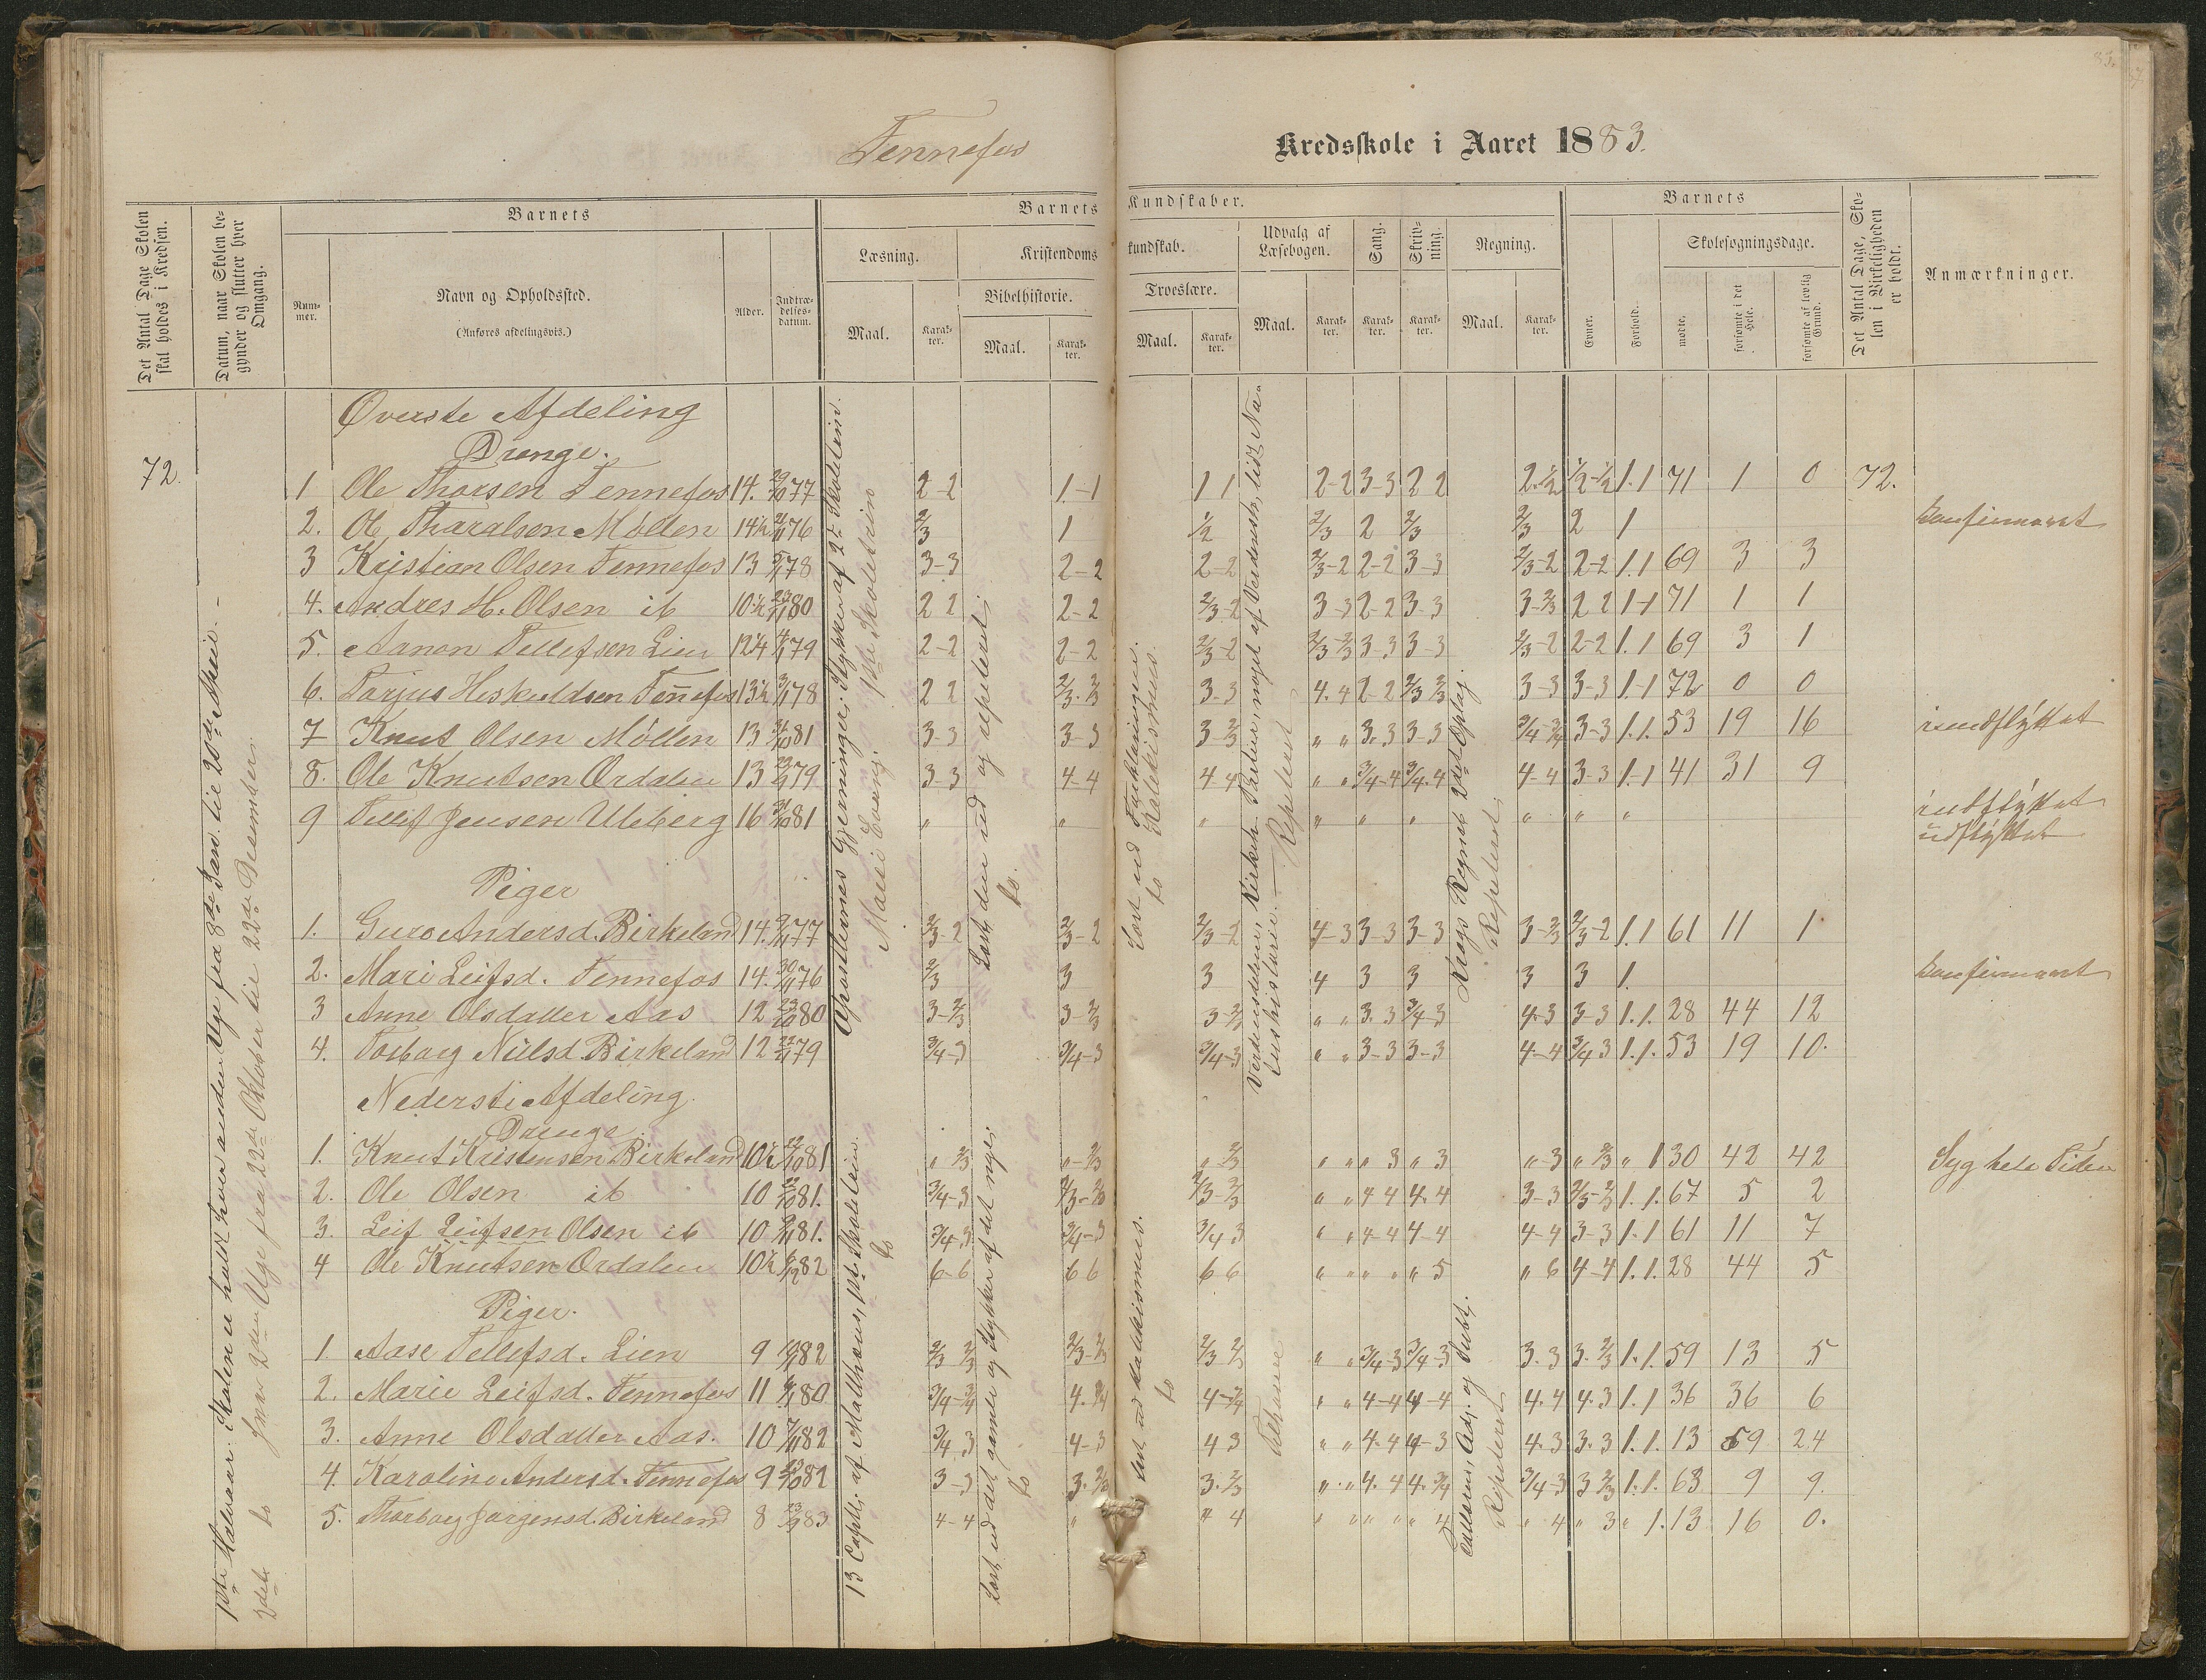 Fennefos
Kredsskole i Aaret 1883.
Det Antal Dage Skolen skal holdes i Kredsen.
Datum, naar Skolen begynder og slutter hver Omgang.
Barnets
Nummer.
Navn og Opholdssted.
(Anføres afdelingsvis.)
Alder.
Indtrædelsesdatum.
Barnets Kundskaber.
Læsning.
Maal.
Karakter.
Kristendomskundskab.
Bibelhistorie.
Maal.
Karakter.
Troeslære.
Maal.
Karakter.
Udvalg af Læsebogen.
Maal.
Karakter.
Sang.
Karakter.
Skrivning.
Karakter.
Regning.
Maal.
Karakter.
Barnets
Evner.
Forhold.
Skolesøgningsdage.
mødte.
forsømte i det Hele.
forsømte af lovlig Grund.
Det Antal Dage, Skolen i Virkeligheden er holdt.
Anmærkninger.
Øverste Afdeling
Drenge.
72.
1 Ole Thorsen Fennefos 14. 29/10 77 2-2 1-1 1 1 2-2 3-3 2 2 2-1/2 1/2-1/2 1.1 71 1 0 72.
2. Ole Tharalsen Møllen 14 1/2 2/11 76 2/3 1 1/2 2/3 2 2/3 2/3 2 1 konfirmeret
3 Kristian Olsen Fennefos 13 5/11 78 3-3 2-2 2-2 2/3-2 2-2 3-3 2/3-2 2-2 1.1 69 3 3
4. Andres H. Olsen ib 10 1/2 80 2 2 2-2 2/3-2 3-3 2-2 3-3 3-2/3 2 2 1-1 71 1 1
5. Aanon Tellefsen Lien 12 1/4 79 2-2 2-2 2/3-2 2/3-2/3 3-3 3-3 2/3-2 2-2 1.1 69 3 1
6. Tarjus Heskuldsen Fennefos 13 1/2 78 2 2 2/3-2/3 3-3 4.4 2-2 2/3 2/3 3-3 3-3 1-1 72 0 0
7 Knut Olsen Møllen 13 31/10 81 3-3 3-3 3 2/3 " " 3.3 3-3 3/4-3/4 3-3 1.1. 53 19 16 indflyttet
8. Ole Knutsen Ordalen 13 79 3-3 4-4 4 4 " " 3/4-4 3/4.4 4-4 3-3 1-1 41 31 9
9 Tellef Jensen Uleberg 16 31/10 81 " " " " " " " " " indflyttet
udflyttet
Piger
1. Guro Andersd. Birkeland 14. 77 2/3-2 2/3-2 2/3-2 4-3 3-3 3-3 3-2/3 2/3-2 1.1 61 11 1
2. Mari Leifsd. Fennefos 14. 30/11 76 2/3 3 3 4 3 3 3 3 1. konfirmeret
3 Anne Olsdatter Aas 12 23/10 80 3-2/3 3-2/3 3-2/3 " " 3.3 3/4-3 4-3 3-3 1.1. 28 44 12
4. Torborg Nielsd. Birkeland 12 79 3/4-3 3/4-3 3/4-3 " " 3-3 3-3 4-4 3/4 3 1.1. 53 19 10.
Nederste Afdeling.
Drenge.
1. Knut Kristensen Birkeland 10 1/2 22/10 81 " 2/3 "-2/3 " 2/3 " " " 3 " 3 "-3 " 2/3 " 1 30 42 42 Syg hele Tiden
2. Ole Olsen ib 10 22/10 81. 3/4-3 2/3-2/3 2/3-2/3 " " 4 4 4.4 3-3 1.1. 67 5 2
3. Leif Leifsen Olsen ib 10 81. 3/4-3 3/4-3 3/4 3 " " 4-4 4-4 4-4 3-3 1-1 61 11 7
4 Ole Knutsen Ordalen 10 1/2 82 6-6 6 6 6 6 " " " " " 5 " 6 4-4 1.1. 28 44 5
Piger.
1. Aase Tellefsd. Lien 9 82 2/3 2/3 2/3-2/3 2/3 2/3 " " 3/4-3 3/4-3 3.3 3.2/3 1.1. 59 13 5
2. Marie Leifsd. Fennefos 11 80 3/4-3/4 4.3/4 4-3/4 " " 4-4 4-4 4.4 4.3 1.1 36 36 6
3. Anne Olsdatter Aas. 10 7/11 82 3/4 3 4-3 4 3 " " 4.4 4-3 4.3 3.3 1.1. 13 59 24
4. Karoline Andersd. Fennefos 9 23/10 82 3-3 3.2/3 3.2/3 " " 4.4 4.3/4 3/4-3 3 2/3 1.1. 63 9 9.
5. Thorborg Jørgensd. Birkeland 8 83 4-4 " " 4 " " " " " 4 " 4 " 3 " 1. 13 16 0.
1ste Halvaar. Skolen er holdt hver anden Uge fra 8de Jan. til 20de Mai.
2det do hver 2den Uge fra 22de Oktober til 22de Desember.
Apostlernes Gjerninger, Stykker af 2. Skoletrin.
Marci Evang. 1ste Skoletrin
13 Capt. af Matthæus, 1ste Skoletrin.
do
Læst den ud og repeteret.
do.
Læst ud det gamle og Stykker af det nye.
do
Læst ud Forklaringen.
do Katekismus.
Læst ud Katekismus.
do
Verdensdelene, Kirkeh. Reform, noget af Verdensh, lidt Naturhistorie. — Repeteret
Athanere
Kregs Regneb. 2det Oplag.
Repeteret.
Talleren, Adi. og Subt.
Repeteret